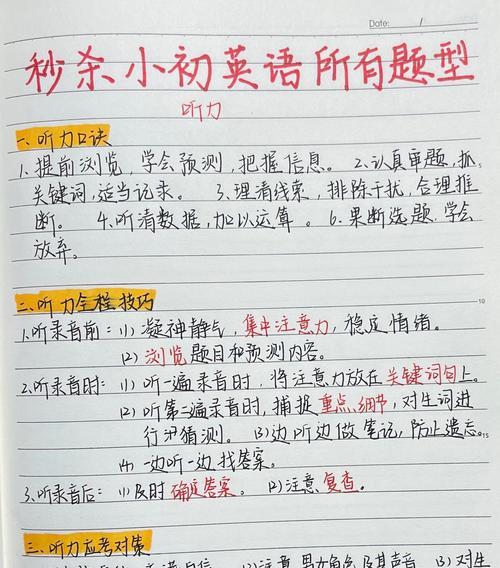 Date: /
秒杀小初英语所有题型
听力
一、听力口诀
1、提前浏览，学会预测，把握信息。 2、认真审题，抓
关键词，适当记录。 3、理清线索，排除干扰，合理推
断。 4、听清数据，加以运算。 6、果断选题，学会
放弃。
二、听力全程技巧
10
1、听录音前：(1) 凝神静气，集中注意力，稳定情绪。
(2) 浏览题目和预测内容。
2、听录音时：(1) 听一遍录音时，将注意力放在关键词句上。
(2) 听第二遍录音时，捕捉重点细节，对生词进
行猜测。 (3) 边听边做笔记，防止遗忘。
15
(4) 一边听一边找答案。
3、听录音后：(1) 及时确定答案。 (2) 注意复查。
三、听力应考对策
(2) 注意男女角色及其声音 (3) 对生